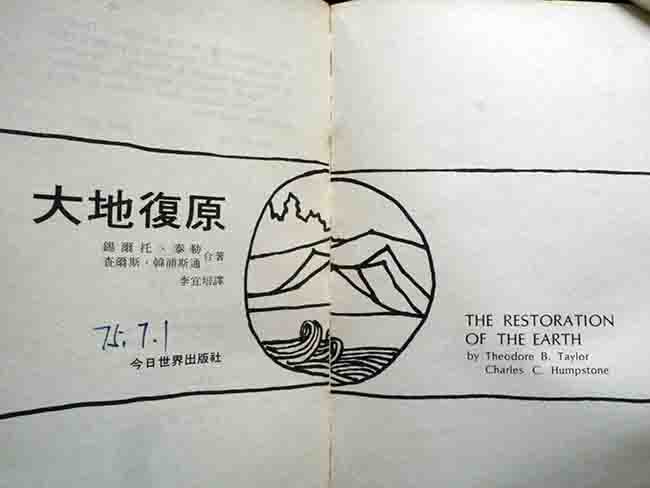 大地復原
錫爾托·泰勒
查爾斯·韓浦斯通 合著
李宜培譯
75.7.1
今日世界出版社
THE RESTORATION
OF THE EARTH
by Theodore B. Taylor
Charles C. Humpstone